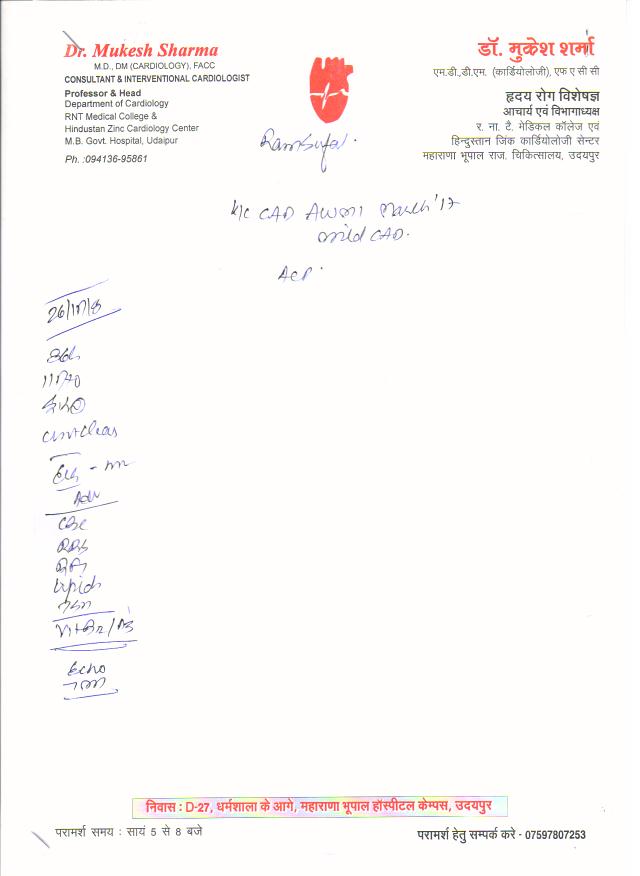 Dr. Mukesh Sharma
M.D., DM (CARDIOLOGY), FACC
CONSULTANT & INTERVENTIONAL CARDIOLOGIST
Professor & Head
Department of Cardiology
RNT Medical College &
Hindustan Zinc Cardiology Center
M.B. Govt. Hospital, Udaipur
Ph. :094136-95861
डॉ. मुकेश शर्मा
एम.डी.,डी.एम. (कार्डियोलॉजी), एफ ए सी सी
हृदय रोग विशेषज्ञ
आचार्य एवं विभागाध्यक्ष
र. ना. टै. मेडिकल कॉलेज एवं
हिन्दुस्तान जिंक कार्डियोलॉजी सेन्टर
महाराणा भूपाल राज. चिकित्सालय, उदयपुर
K/c CAD AWMI March'17
mild CAD.
Chest clear
Adv
CBC
RBS
Lipids
Vit B12/D3
Echo
निवास : D-27, धर्मशाला के आगे, महाराणा भूपाल हॉस्पीटल केम्पस, उदयपुर
परामर्श समय : सायं 5 से 8 बजे
परामर्श हेतु सम्पर्क करे - 07597807253